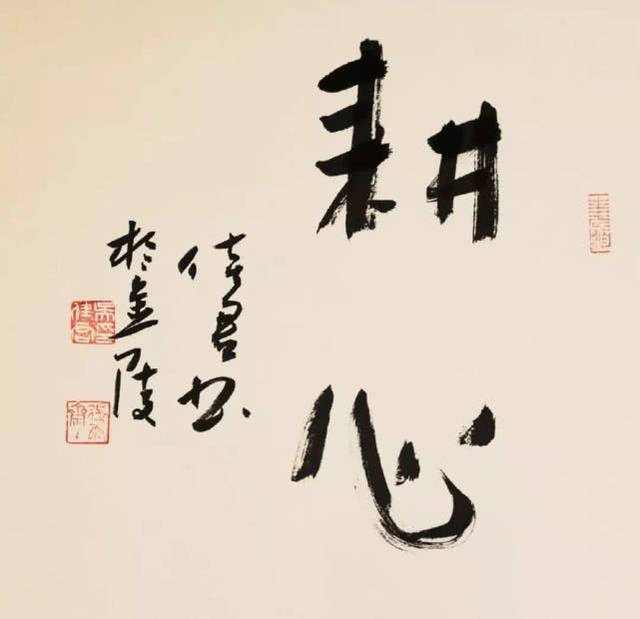 耕心
佳君书
於金陵